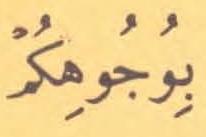 بِوُجُوهِكُمْ